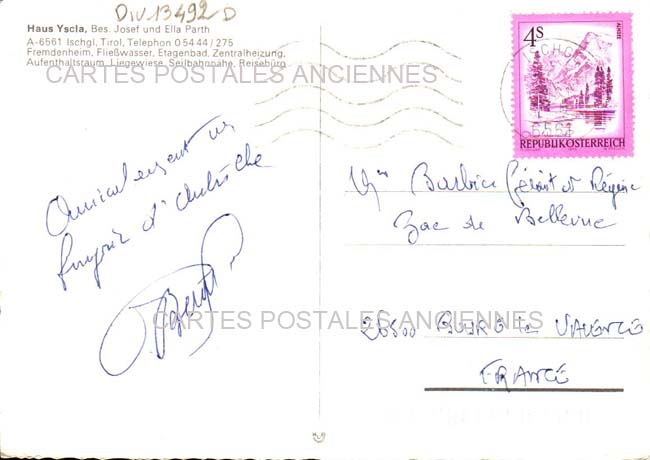 Div 13492 D
Haus Yscla, Bes. Josef und Ella Parth
A-6561 Ischgl, Tirol, Telephon 0 54 44 / 275
Fremdenheim, Fließwasser, Etagenbad, Zentralheizung,
Aufenthaltsraum, Liegewiese, Seilbahnnähe, Reisebüro
CARTES POSTALES ANCIENNES
4S
ALMSEE
REPUBLIK ÖSTERREICH
6561
Amicalement
d'Autriche
Barbier Gérard et Régine
Zac de Bellevue
26500 BOURG LES VALENCE
FRANCE
CARTES POSTALES ANCIENNES